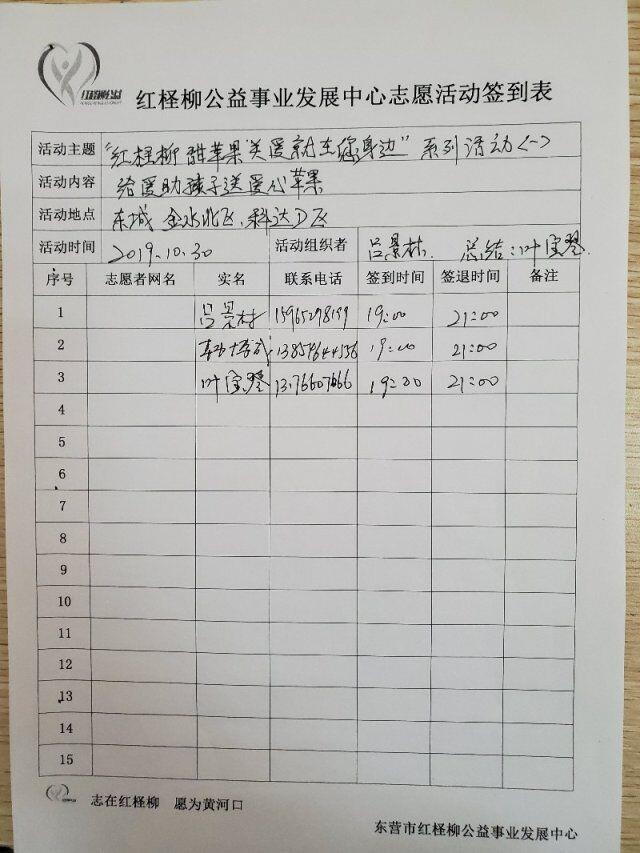 红柽柳公益
红柽柳公益事业发展中心志愿活动签到表
活动主题 "红柽柳 甜苹果 关爱就在您身边" 系列活动<一>
活动内容 给受助孩子送爱心苹果
活动地点 东城 金水北区、科达小区
活动时间 2019.10.30 活动组织者 吕景林. 总结:叶宝琴.
序号 志愿者网名 实名 联系电话 签到时间 签退时间 备注
1 吕景林 19:00 21:00
2 19:00 21:00
3 叶宝琴 19:00 21:00
4
5
6
7
8
9
10
11
12
13
14
15
志在红柽柳 愿为黄河口
东营市红柽柳公益事业发展中心